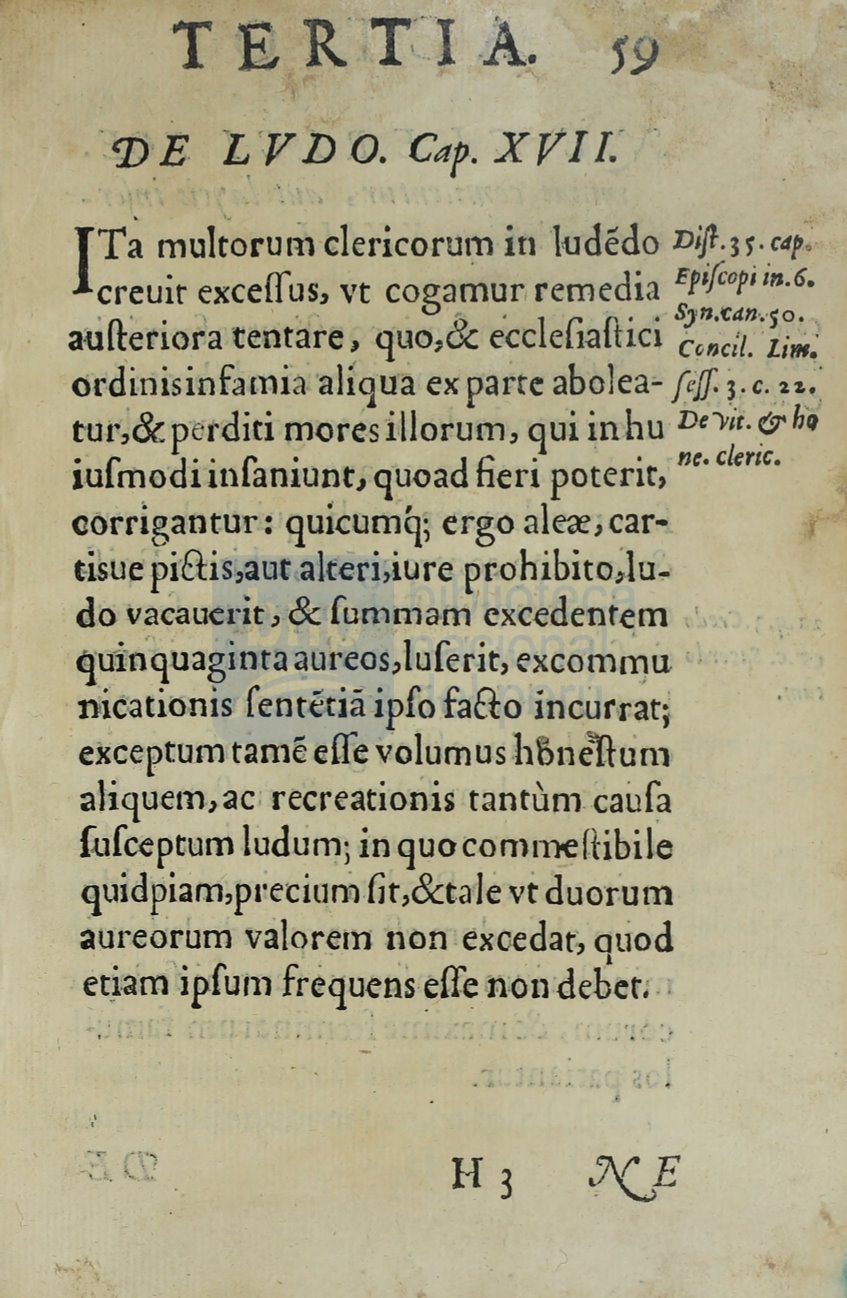 TERTIA. 59
DE LVDO. Cap. XVII.
ITa multorum clericorum in ludēdo
creuit excessus, vt cogamur remedia
austeriora tentare, quo,& ecclesiastici
ordinis infamia aliqua ex parte abolea-
tur,& perditi mores illorum, qui in hu
iusmodi insaniunt, quoad fieri poterit,
corrigantur: quicumq́; ergo aleæ, car-
tisue pictis, aut alteri, iure prohibito, lu-
do vacauerit, & summam excedentem
quinquaginta aureos, luserit, excommu
nicationis sentētiā ipso facto incurrat;
exceptum tamē esse volumus honestum
aliquem, ac recreationis tantùm causa
susceptum ludum; in quo commestibile
quidpiam, precium sit, & tale vt duorum
aureorum valorem non excedat, quod
etiam ipsum frequens esse non debet.
Dist. 35. cap.
Episcopi in. 6.
Syn. can. 50.
Concil. Lim.
sess. 3. c. 22.
De vit. & ho
ne. cleric.
H 3 NE